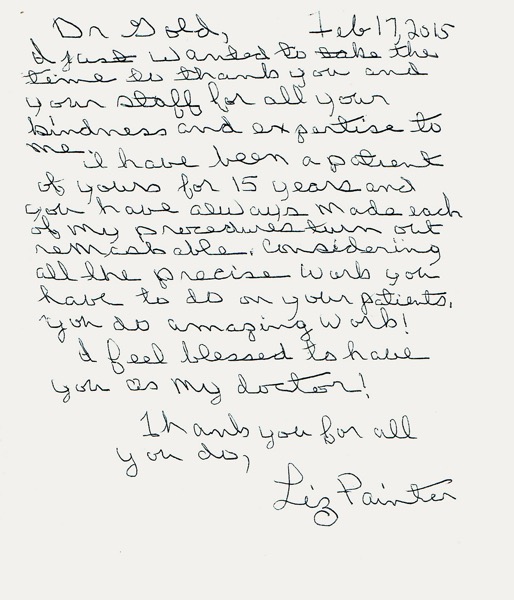 Dr Gold, Feb 17, 2015
I just wanted to take the
time to thank you and
your staff for all your
kindness and expertise to
me.
I have been a patient
of yours for 15 years and
you have always made each
of my procedures turn out
remarkable. Considering
all the precise work you
have to do on your patients.
You do amazing work!
I feel blessed to have
you as my doctor!
Thank you for all
you do,
Liz Painter